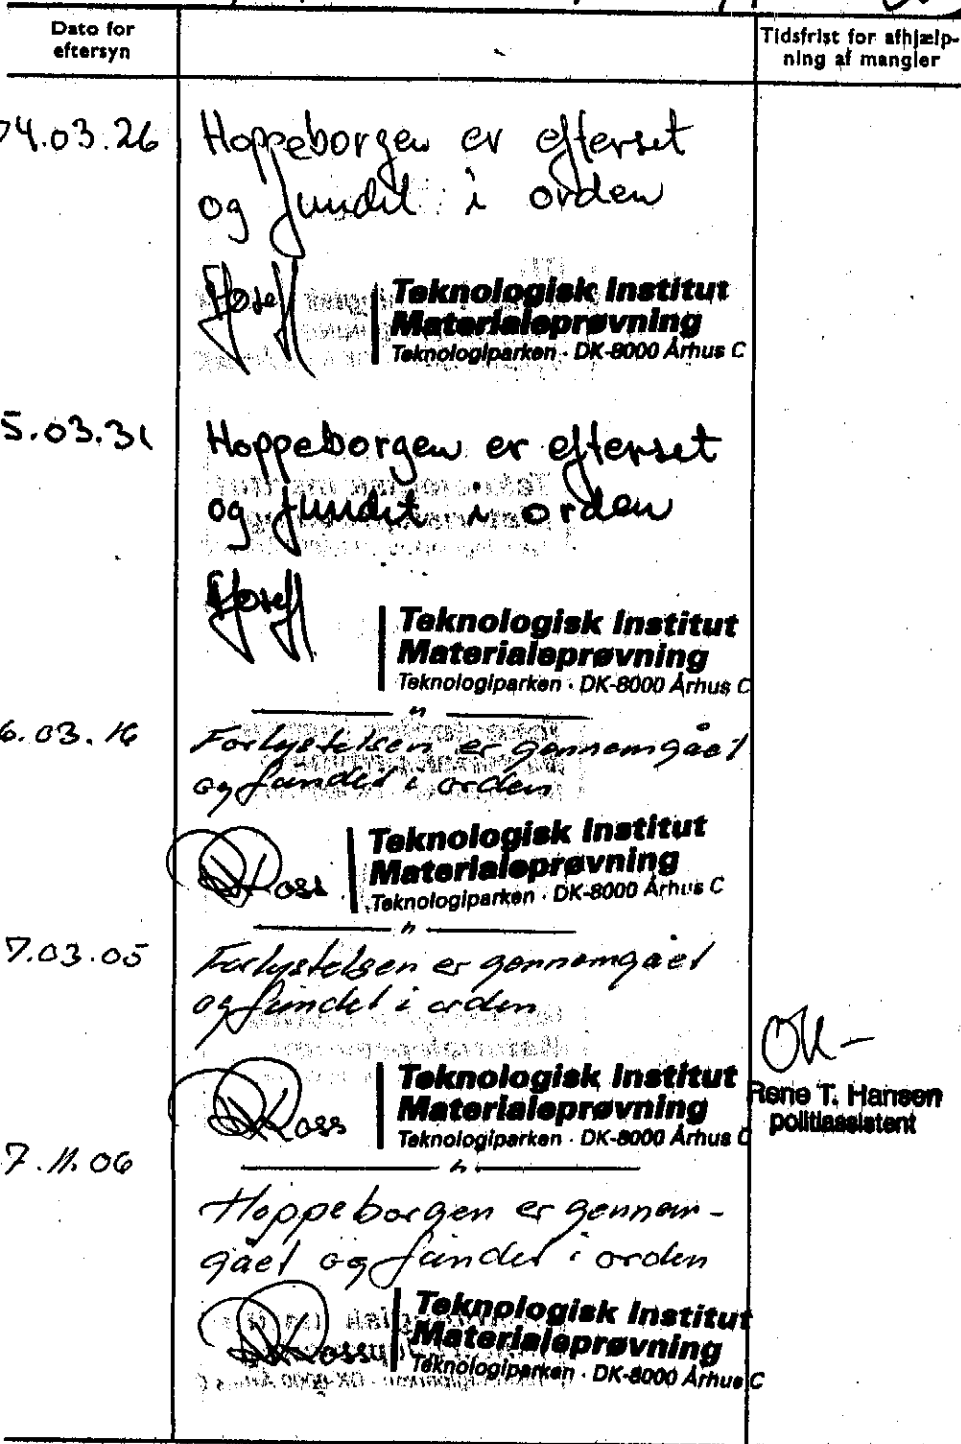 Dato for
eftersyn
Tidsfrist for afhjælp-
ning af mangler
94.03.26
Hoppeborgen er efterset
og fundet i orden
Teknologisk Institut
Materialeprøvning
Teknologiparken · DK-8000 Århus C
5.03.31
Hoppeborgen er efterset
og fundet i orden
Teknologisk Institut
Materialeprøvning
Teknologiparken · DK-8000 Århus C
6.03.16
Forlystelsen er gennemgået
og fundet i orden
Teknologisk Institut
Materialeprøvning
Teknologiparken · DK-8000 Århus C
7.03.05
Forlystelsen er gennemgået
og fundet i orden
OK-
Rene T. Hansen
politiassistent
Teknologisk Institut
Materialeprøvning
Teknologiparken · DK-8000 Århus C
7.11.06
Hoppeborgen er gennem-
gået og fundet i orden
Teknologisk Institut
Materialeprøvning
Teknologiparken · DK-8000 Århus C